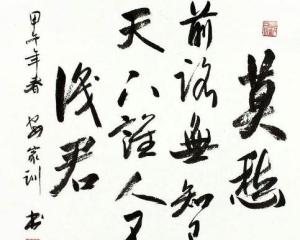 莫愁
前路無知己
天下誰人不
識君
甲午年春 家訓 书